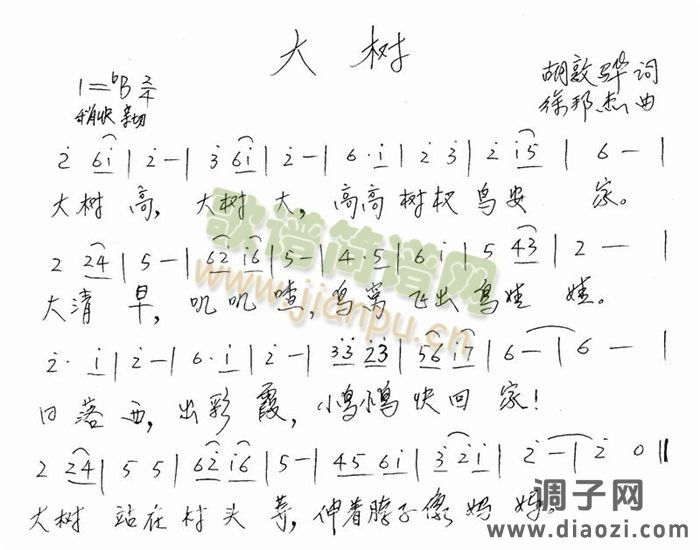 大树
1=♭B 2/4
稍快 亲切
胡敦骅 词
徐邦杰 曲
2̇ 6i̇ | 2̇ — | 3̇ 6i̇ | 2̇ — | 6 · i̇ | 2̇ 3̇ | 2̇ i̇5 | 6 — |
大树 高, 大树 大, 高高 树杈 鸟安 家。
2 24 | 5 — | 62̇ i̇6 | 5 — | 4 · 5 | 6 i̇ | 5 43 | 2 — |
大清 早, 叽叽 喳, 鸟窝 飞出 鸟娃 娃。
2̇ · i̇ | 2̇ — | 6 · i̇ | 2̇ — | 3̇3̇ 2̇3̇ | 56 i̇7 | 6 — | 6 — |
日落 西, 出彩 霞, 小鸟小鸟 快回 家!
2 24 | 5 5 | 62̇ i̇6 | 5 — | 45 6i̇ | 3̇ 2̇i̇ | 2̇ — | 2̇ 0 ‖
大树 站在 村头 等, 伸着脖子 像妈 妈。
歌谱简谱网
www.jianpu.cn
调子网
www.diaozi.com